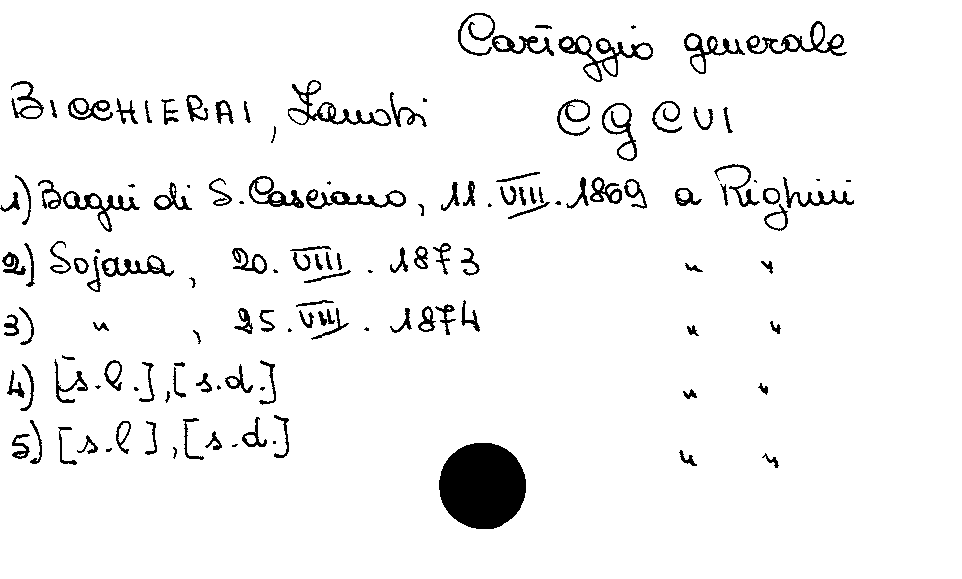 Carteggio generale
BICCHIERAI, Zanobi CG CVI
1) Bagni di S. Casciano, 11.VIII.1869 a Righini
2) Sojana, 20.VIII.1873 " "
3) " , 25.VIII.1874 " "
4) [s.l.], [s.d.] " "
5) [s.l], [s.d.] " "